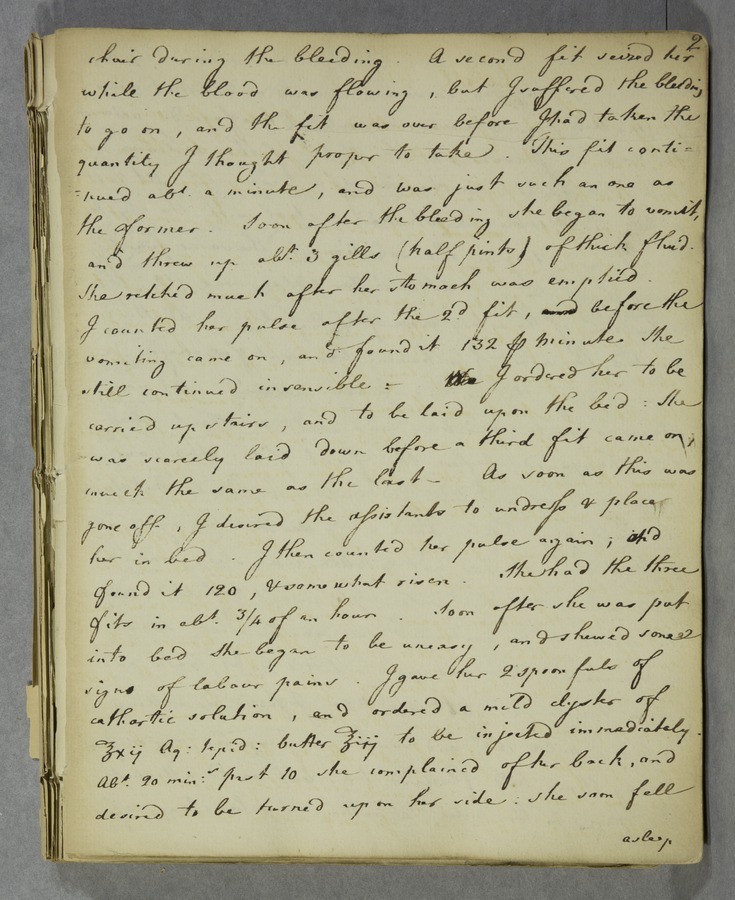 2
chair during the bleeding. A second fit seized her
while the blood was flowing, but I suffered the bleeding
to go on, and the fit was over before I had taken the
quantity I thought proper to take. This fit conti=
=nued abt. a minute, and was just such an one as
the former. Soon after the bleeding she began to vomit,
and threw up abt. 3 gills (half pints) of thick fluid.
She retched much after her stomach was emptied.
I counted her pulse after the 2d fit, before the
vomiting came on, and found it 132 ⅌ minute. She
still continued insensible:- I ordered her to be
carried up stairs, and to be laid upon the bed: She
was scarcely laid down before a third fit came on,
much the same as the last- As soon as this was
gone off, I desired the assistants to undress & place
her in bed. I then counted her pulse again; and
found it 120, & somewhat risen. She had the three
fits in abt. 3/4 of an hour. Soon after she was put
into bed she began to be uneasy, and shewed some
signs of labour pains. I gave her 2 spoonfuls of
cathartic solution, and ordered a mild clyster of
℥xij Aq: tepid: butter ℥iij to be injected immediately.
Abt. 20 min:s past 10 she complained of her back, and
desired to be turned upon her side: she soon fell
asleep